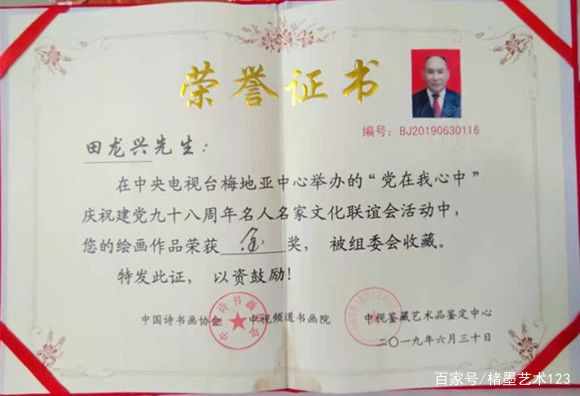 荣誉证书
编号：BJ20190630116
田龙兴先生：
在中央电视台梅地亚中心举办的“党在我心中”
庆祝建党九十八周年名人名家文化联谊会活动中，
您的绘画作品荣获 金 奖，被组委会收藏。
特发此证，以资鼓励！
中国诗书画协会 中视频道书画院 中视鉴藏艺术品鉴定中心
二〇一九年六月三十日
百家号/楮墨艺术123